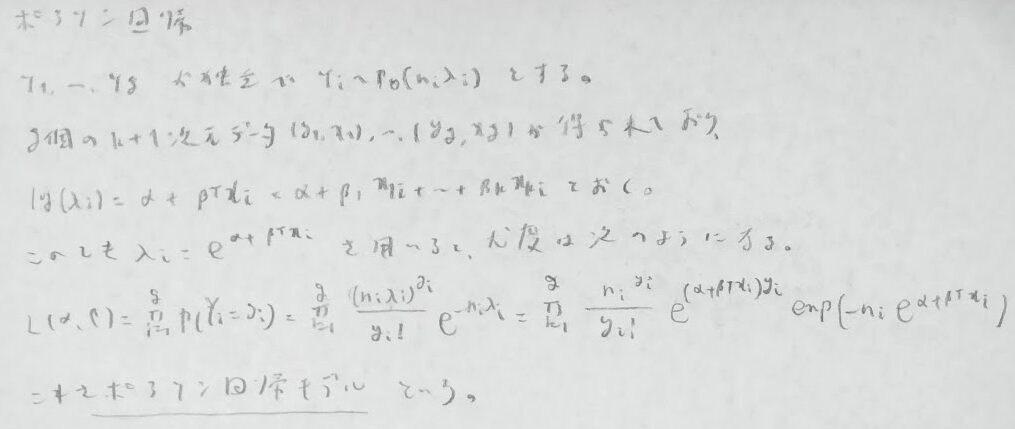 ポアソン回帰
Y₁, …, Yg が独立で Yᵢ ~ Po(nᵢλᵢ) とする。
g個の k+1次元データ (y₁, x₁), …, (yg, xg) が得られており
log(λᵢ) = α + βᵀxᵢ = α + β₁x₁ᵢ + … + βₖxₖᵢ とおく。
このとき λᵢ = e^{α+βᵀxᵢ} を用いると、尤度は次のようになる。
L(α, β) = ∏_{i=1}^{g} P(Yᵢ = yᵢ) = ∏_{i=1}^{g} \frac{(nᵢλᵢ)^{yᵢ}}{yᵢ!} e^{-nᵢλᵢ} = ∏_{i=1}^{g} \frac{nᵢ^{yᵢ}}{yᵢ!} e^{(α+βᵀxᵢ)yᵢ} exp(-nᵢ e^{α+βᵀxᵢ})
これをポアソン回帰モデルという。